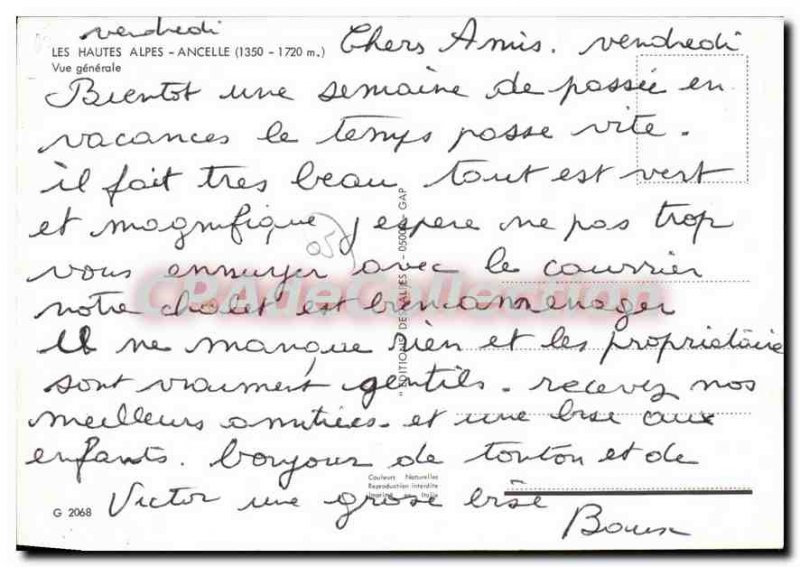 vendredi
LES HAUTES ALPES - ANCELLE (1350 - 1720 m.)
Vue générale
Chers Amis. vendredi
Bientot une semaine de passée en
vacances le temps passe vite.
il fait tres beau tout est vert
et magnifique j espere ne pas trop
vous ennuyer avec le courrier
notre chalet est bien amenager
il ne manque rien et les propriétaire
sont vraiment gentils. recevez nos
meilleurs amitiées. et une bise aux
enfants. bonjour de tonton et de
Victor une grose bise
05
"EDITIONS DES ALPES" - 05000 - GAP
CPADeCollection
Couleurs Naturelles
Reproduction interdite
Imprimé en Italie
G 2068